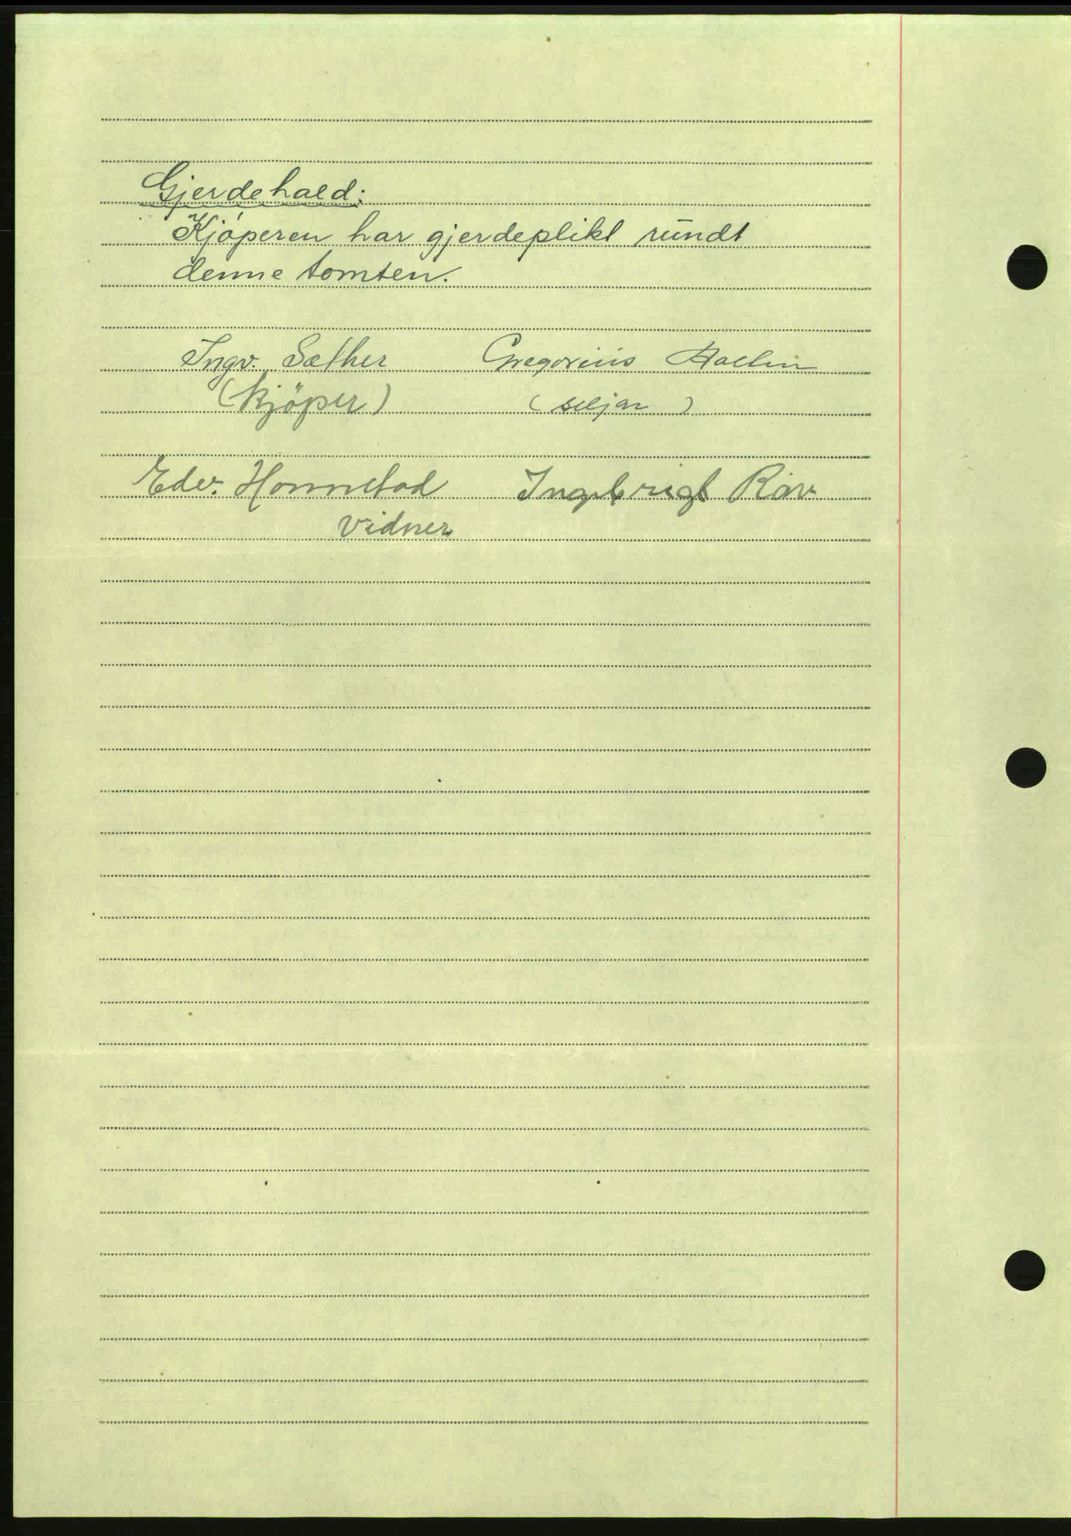 Gjerdehald:
Kjöperen har gjerdeplikt rundt
denne tomten.
Ingv. Sæther Gregorius
(kjöper) (seljar)
Edv. Honnstad Ingebrigt
vidner